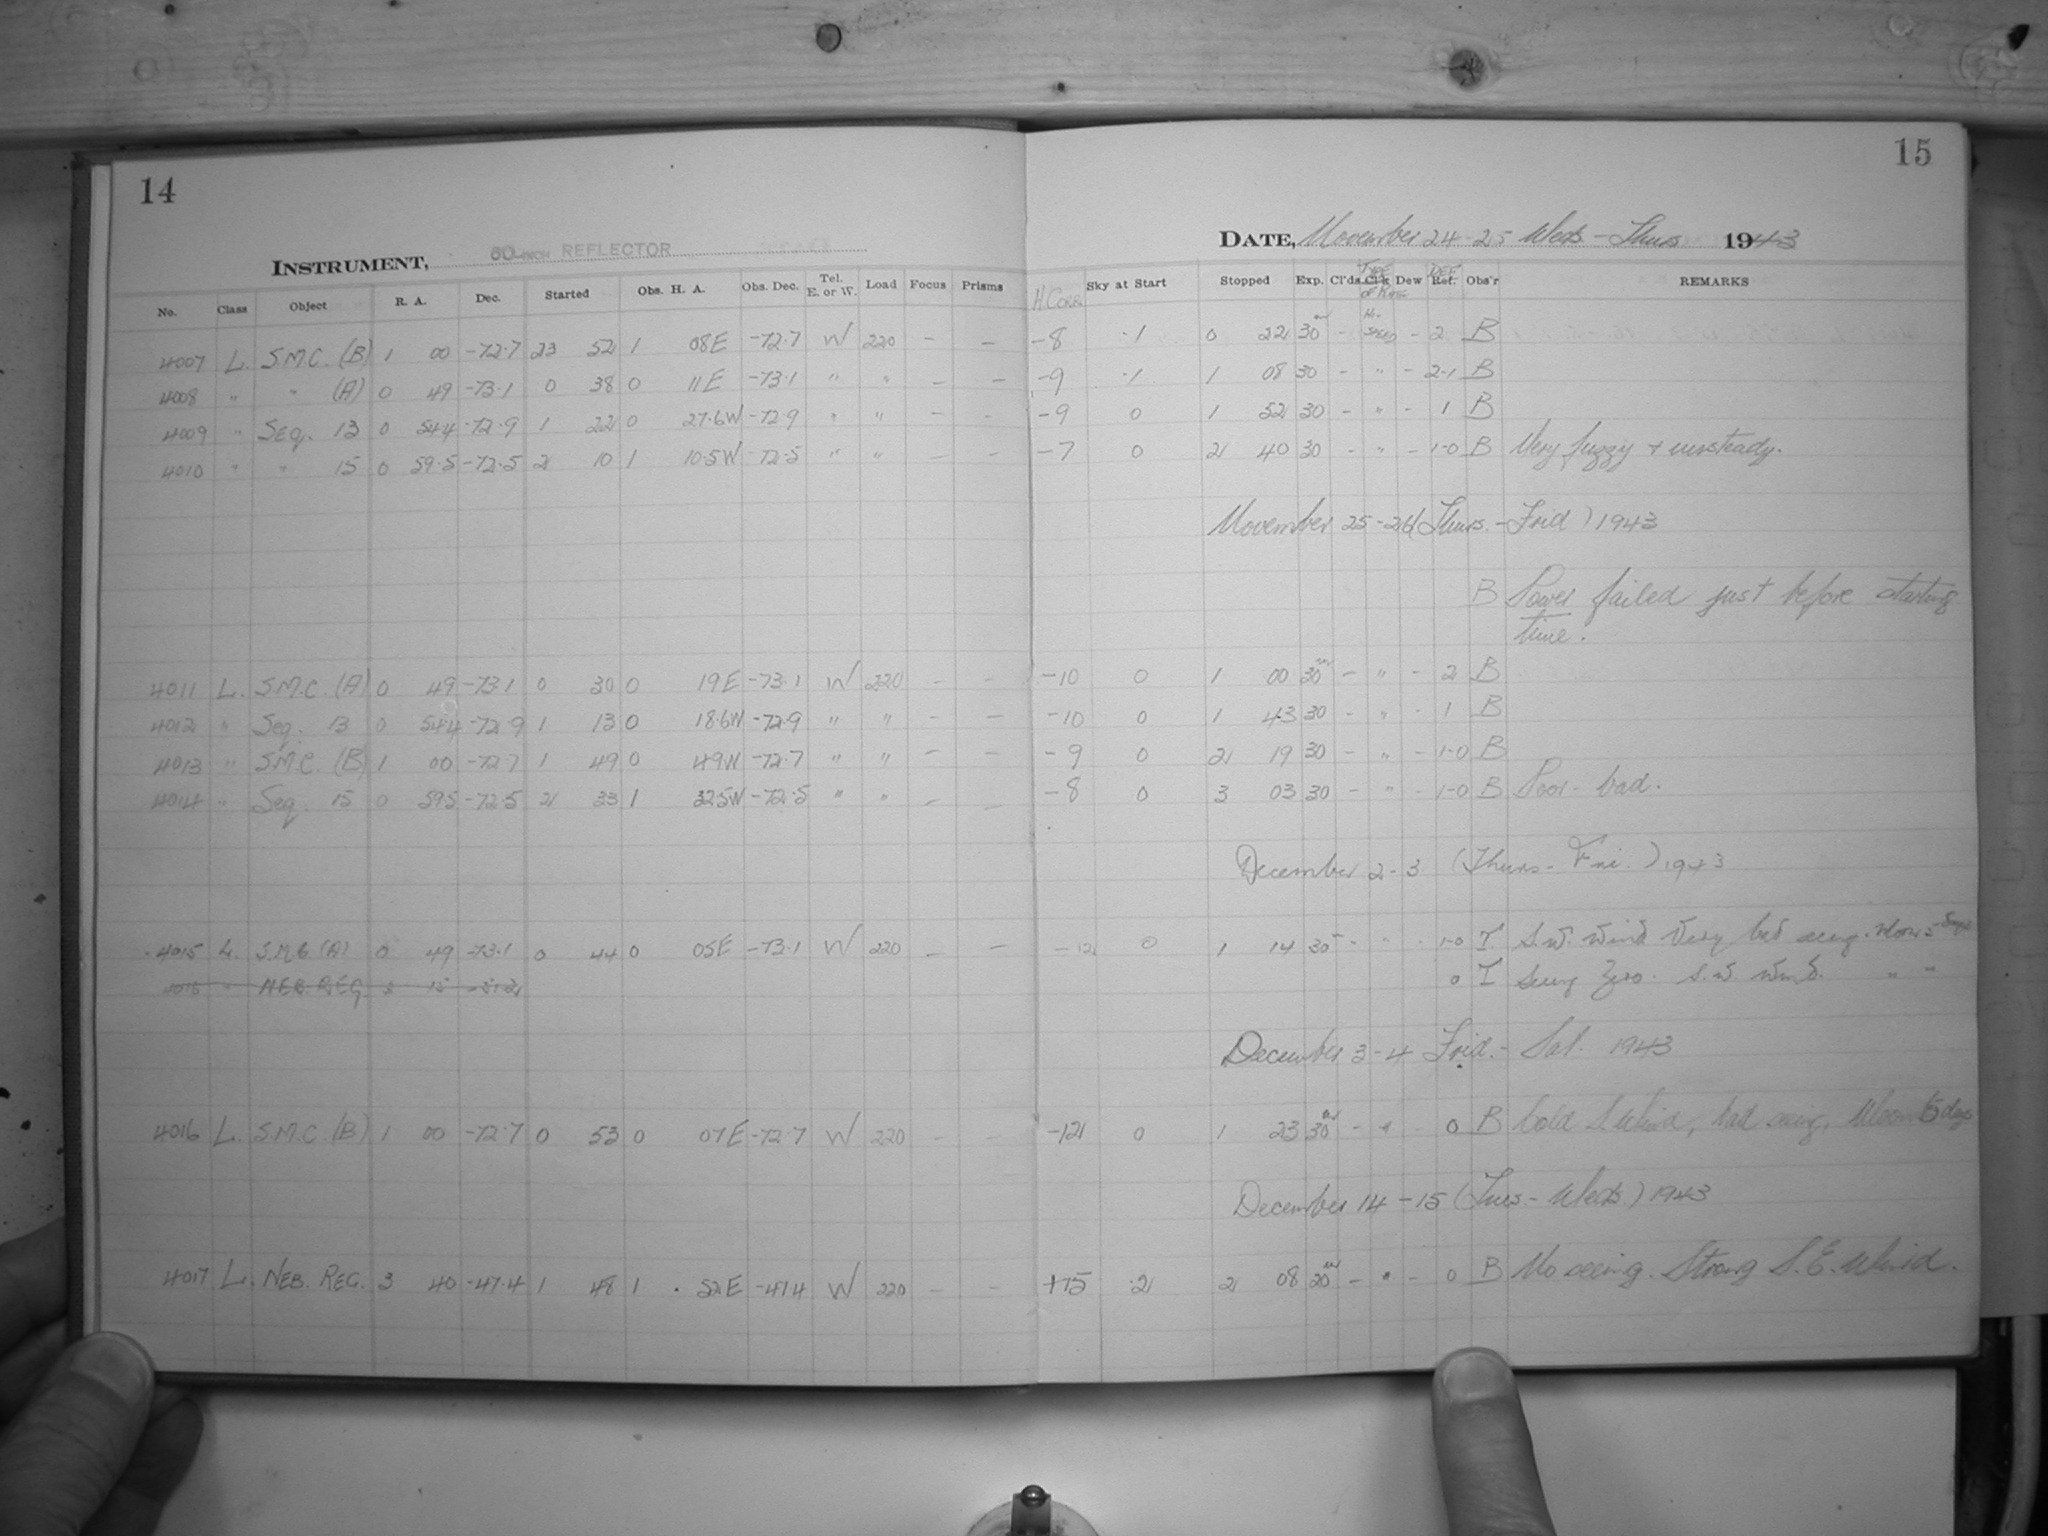 14
15
INSTRUMENT, 60 INCH REFLECTOR
DATE, November 24-25 Weds - Thurs 1943
No. Class Object R. A. Dec. Started Obs. H. A. Obs. Dec. Tel. E. or W. Load Focus Prisms H. Corr. Sky at Start Stopped Exp. Cl'ds Dew Ref. Obs'r REMARKS
4007 L. S.M.C. (B) 1 00 -72.7 23 52 1 08E -72.7 W 220 - - -8 -1 0 22 30 - - 2 B
4008 " " (A) 0 49 -73.1 0 38 0 11E -73.1 " " - - -9 -1 1 08 30 - " - 2-1 B
4009 " Seq. 13 0 54.4 -72.9 1 22 0 27.6W -72.9 " " - - -9 0 1 52 30 - " - 1 B
4010 " " 15 0 59.5 -72.5 2 10 1 10.5W -72.5 " " - - -7 0 2 40 30 - " - 1-0 B Very fuzzy + unsteady.
November 25-26 (Thurs. - Frid) 1943
B Power failed just before starting
time.
4011 L. S.M.C. (A) 0 49 -73.1 0 30 0 19E -73.1 W 220 - - -10 0 1 00 30 - " - 2 B
4012 " Seq. 13 0 54.4 -72.9 1 13 0 18.6W -72.9 " " - - -10 0 1 43 30 - " - 1 B
4013 " S.M.C. (B) 1 00 -72.7 1 49 0 49W -72.7 " " - - -9 0 2 19 30 - " - 1-0 B
4014 " Seq. 15 0 59.5 -72.5 2 33 1 32.5W -72.5 " " - - -8 0 3 03 30 - " - 1-0 B Poor - bad.
December 2-3 (Thurs - Fri.) 1943
4015 L. S.M.C. (A) 0 49 -73.1 0 44 0 05E -73.1 W 220 - - -12 0 1 14 30 - " - 1-0 T S.W. wind Very bad seeing.
NEB. REG. 0 T Seeing Zero. S.W. Wind. " "
December 3-4 Frid. - Sat. 1943
4016 L. S.M.C. (B) 1 00 -72.7 0 53 0 07E -72.7 W 220 - - -12 0 1 23 30 - " - 0 B Cold S. Wind, bad seeing, Moon 5 days
December 14-15 (Tues - Weds.) 1943
4017 L. NEB. REG. 3 40 -47.4 1 48 1 52E -47.4 W 220 - - +15 -2 2 08 20 - " - 0 B No seeing. Strong S.E. Wind.